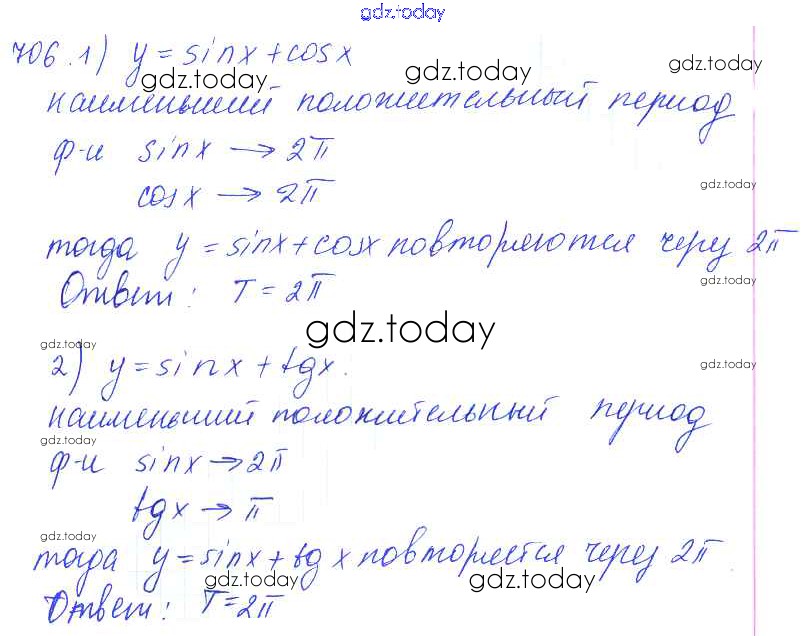 gdz.today
706.1) y = sinx + cosx
gdz.today gdz.today gdz.today
наименьший положительный период
ф-и sinx → 2π
cosx → 2π
gdz.today
тогда y = sinx + cosx повторяются через 2π
gdz.today
Ответ: T = 2π
gdz.today
gdz.today
2) y = sinx + tgx.
gdz.today
наименьший положительный период
gdz.today
ф-и sinx → 2π
tgx → π
gdz.today
тогда y = sinx + tg x повторяется через 2π
gdz.today gdz.today
Ответ: T = 2π